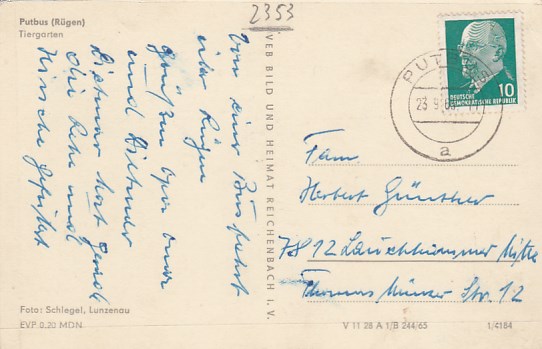 Putbus (Rügen)
Tiergarten
2353
Von einer Busfahrt
über Rügen
grüßen Opa Omar
und Dietmar
Dietmar hat gerade
die Rehe und
Hirsche gefüttert
VEB BILD UND HEIMAT REICHENBACH I. V.
PUTBUS
23.9.66
a
10
DEUTSCHE
DEMOKRATISCHE REPUBLIK
Fam
Herbert Günther
7812 Lauchhammer Mitte
Thomas Münzer Str. 12
Foto: Schlegel, Lunzenau
EVP 0.20 MDN
V 11 28 A 1/B 244/65
1/4184